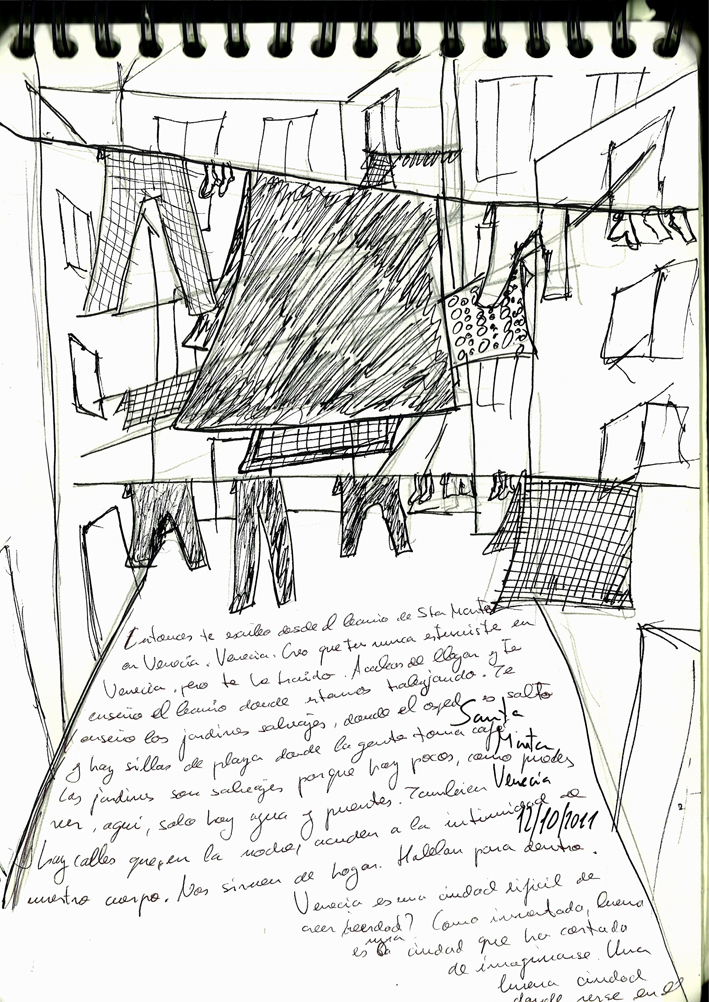 Entonces te escribo desde el barrio de Sta Marta
en Venecia. Venecia. Creo que tu nunca estuviste en
Venecia, pero te he traído. Acabas de llegar y te
enseño el barrio donde estamos trabajando. Te
enseño los jardines salvajes, donde el césped es salto
y hay sillas de playa donde la gente toma café.
Los jardines son salvajes porque hay pocos, como puedes
ver, aquí, solo hay agua y puentes. También
hay calles que, en la noche, acuden a la intimidad de
nuestro cuerpo. Nos sirven de hogar. Hablan para dentro.
Santa
Marta,
Venecia
12/10/2011
Venecia es una ciudad difícil de
creer ¿verdad? Como inventada, bueno
es una ciudad que ha costado
de imaginarse. Una
buena ciudad
donde verse en el